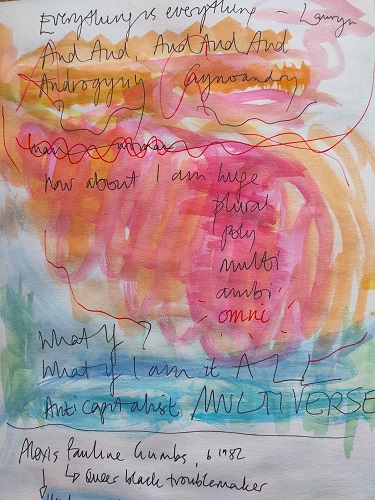 Everything is everything - Lauryn
And And, And And And
Androgyny Gynoandry
man woman
how about I am huge
plural
poly
multi
ambi
omni
What if?
What if I am it ALL
Anticapitalist MULTIVERSE
Alexis Pauline Gumbs, b 1982
↳ Queer black troublemaker